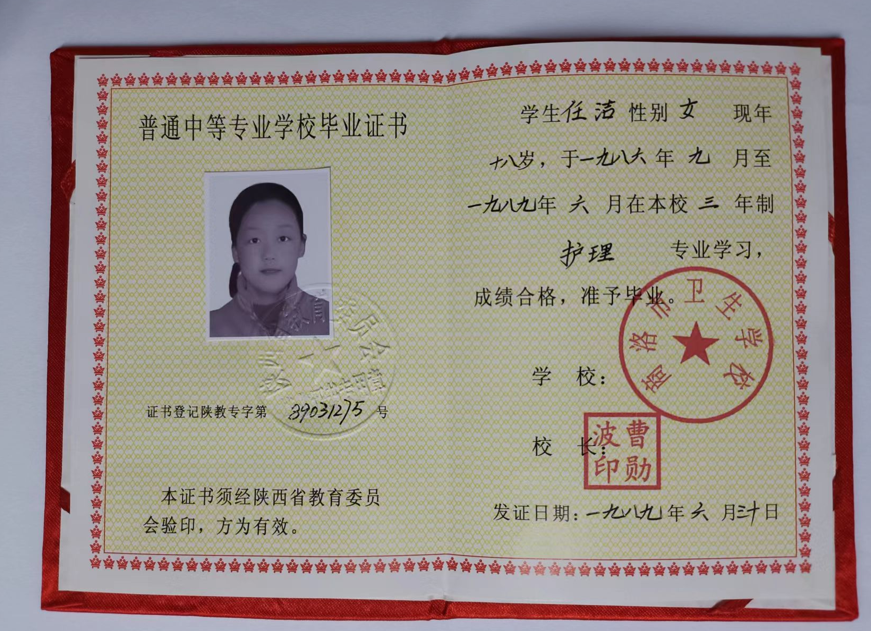 普通中等专业学校毕业证书
证书登记陕教专字第 89031275 号
本证书须经陕西省教育委员
会验印，方为有效。
学生任洁 性别 女 现年
十八岁，于一九八六年 九 月至
一九八九年 六 月在本校 三 年制
护理 专业学习，
成绩合格，准予毕业。
学 校：
商洛市卫生学校
校 长：
曹勋波印
发证日期：一九八九年六月三十日